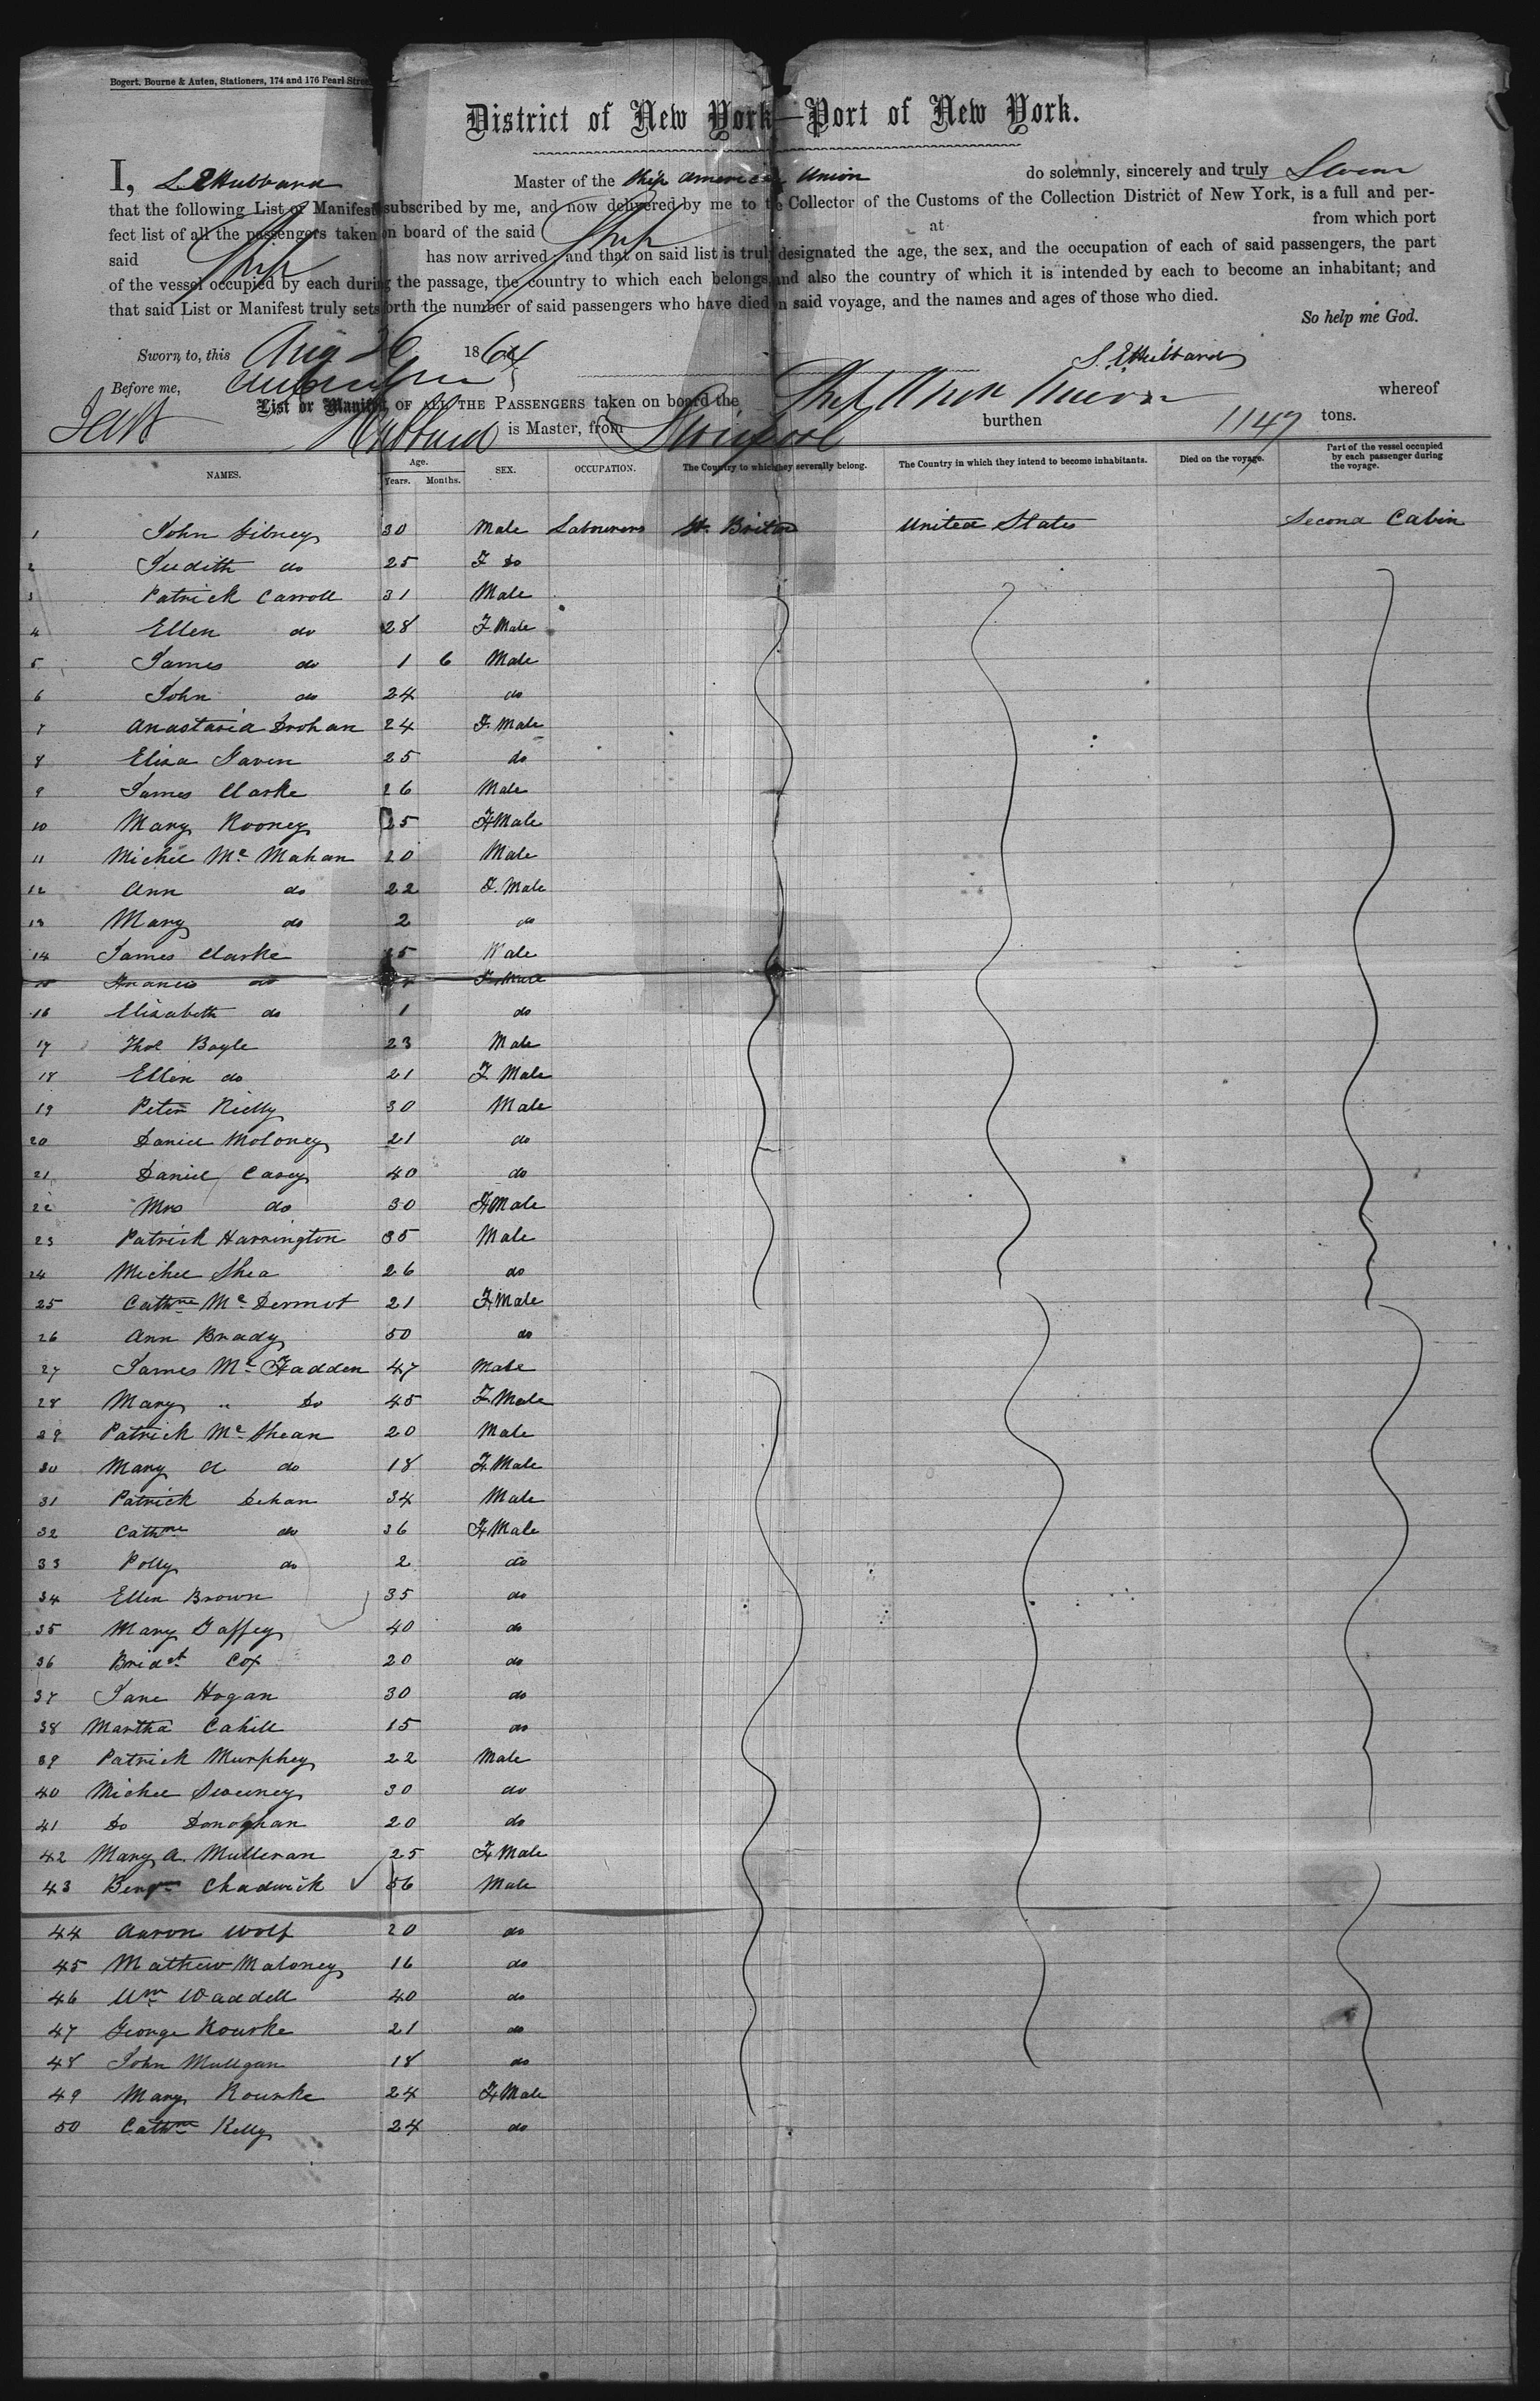 Bogert, Bourne & Auten, Stationers, 174 and 176 Pearl Stree
District of New York—Port of New York.
I, S. E Hubbard Master of the Ship American Union do solemnly, sincerely and truly Swear
that the following List or Manifest subscribed by me, and now delivered by me to the Collector of the Customs of the Collection District of New York, is a full and per-
fect list of all the passengers taken on board of the said Ship at from which port
said Ship has now arrived; and that on said list is truly designated the age, the sex, and the occupation of each of said passengers, the part
of the vessel occupied by each during the passage, the country to which each belongs, and also the country of which it is intended by each to become an inhabitant; and
that said List or Manifest truly sets forth the number of said passengers who have died on said voyage, and the names and ages of those who died.
So help me God.
Sworn to, this Aug 26 1864
S. E. Hubbard
Before me,
List or Manifest OF ALL THE PASSENGERS taken on board the Ship Union whereof
Hubbard is Master, from Liverpool burthen 1147 tons.
NAMES. Age. Years. Months. SEX. OCCUPATION. The Country to which they severally belong. The Country in which they intend to become inhabitants. Died on the voyage. Part of the vessel occupied by each passenger during the voyage.
1 John Gibney 30 Male Labourers Gt. Britan United States Second Cabin
2 Judith do 25 F do
3 Patrick Carroll 31 Male
4 Ellen do 28 F. Male
5 James do 1 6 Male
6 John do 24 do
7 Anastasia Drohan 24 F. Male
8 Eliza Gaven 25 do
9 James Clarke 26 Male
10 Mary Rooney 25 F Male
11 Michel Mc Mahan 20 Male
12 Ann do 22 F. Male
13 Mary do 2 do
14 James Clarke 25 Male
15 Francis do F. Male
16 Elizabeth do 1 do
17 Thos Boyle 23 Male
18 Ellen do 21 F. Male
19 Peter Rielly 30 Male
20 Daniel Moloney 21 do
21 Daniel Casey 40 do
22 Mrs do 30 F Male
23 Patrick Harrington 35 Male
24 Michel Shea 26 do
25 Cathne Mc Dermot 21 F Male
26 Ann Brady 50 do
27 James Mc Fadden 47 Male
28 Mary " Do 45 F. Male
29 Patrick Mc Shean 20 Male
30 Mary A do 18 F. Male
31 Patrick Dehan 34 Male
32 Cathne do 36 F Male
33 Polly do 2 do
34 Ellen Brown 35 do
35 Mary Gaffey 40 do
36 Bridt Cox 20 do
37 Jane Hogan 30 do
38 Martha Cahill 15 do
39 Patrick Murphey 22 Male
40 Michel Sweeney 30 do
41 Do Donoghan 20 do
42 Mary A. Mulleran 25 F Male
43 Benjn Chadwick ✓ 56 Male
44 Aaron Wolf 20 do
45 Mathew Maloney 16 do
46 Wm Waddell 40 do
47 George Rourke 21 do
48 John Mullgan 18 do
49 Mary Rourke 24 F Male
50 Cathne Kelly 24 do